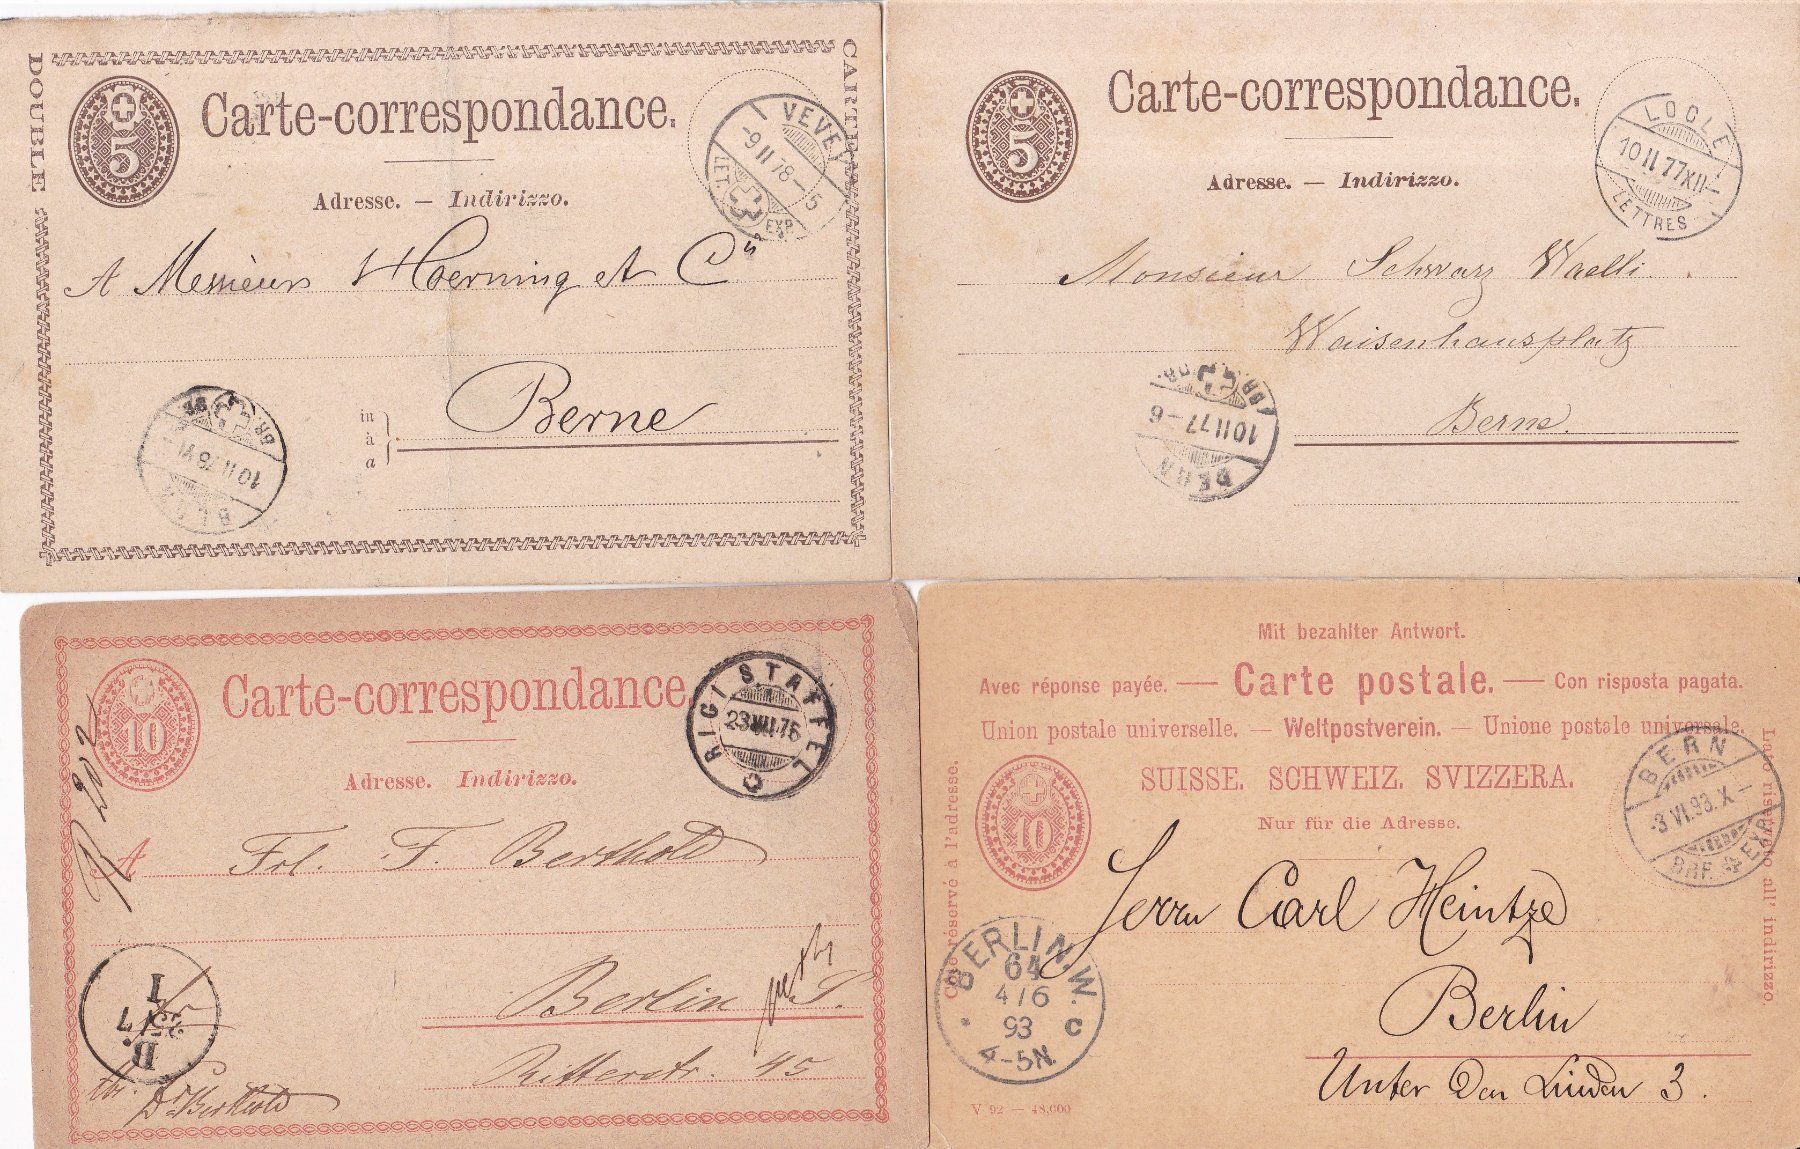 DOUBLE
CARTE
5
Carte-correspondance.
Adresse. — Indirizzo.
VEVEY
-9 II 78 — 5
LET. EXP.
A Messieurs Hoerning et Cie
in
à
a
Berne
10 II 78 VI
BERN
5
Carte-correspondance.
Adresse. — Indirizzo.
LOCLE
10 II 77 XII —
LETTRES
Monsieur Schwarz Waelli
Waisenhausplatz
Berne.
10 II 77 — 6
BERN
10
Carte-correspondance.
Adresse. Indirizzo.
RIGI STAFFEL
23 VII 76
A Frl. F. Berthold
Berlin S.
Ritterstr. 45
Dr Berthold
Mit bezahlter Antwort.
Avec réponse payée. — Carte postale. — Con risposta pagata.
Union postale universelle. — Weltpostverein. — Unione postale universale.
SUISSE. SCHWEIZ. SVIZZERA.
Nur für die Adresse.
10
Côté réservé à l'adresse.
Lato riservato all' indirizzo
BERN
-3 VI.93.X —
BRF. EXP.
Herrn Carl Heintze
Berlin
Unter den Linden 3.
BERLIN.W.
64
4/6
93
4-5N.
C
V 92 — 48,000